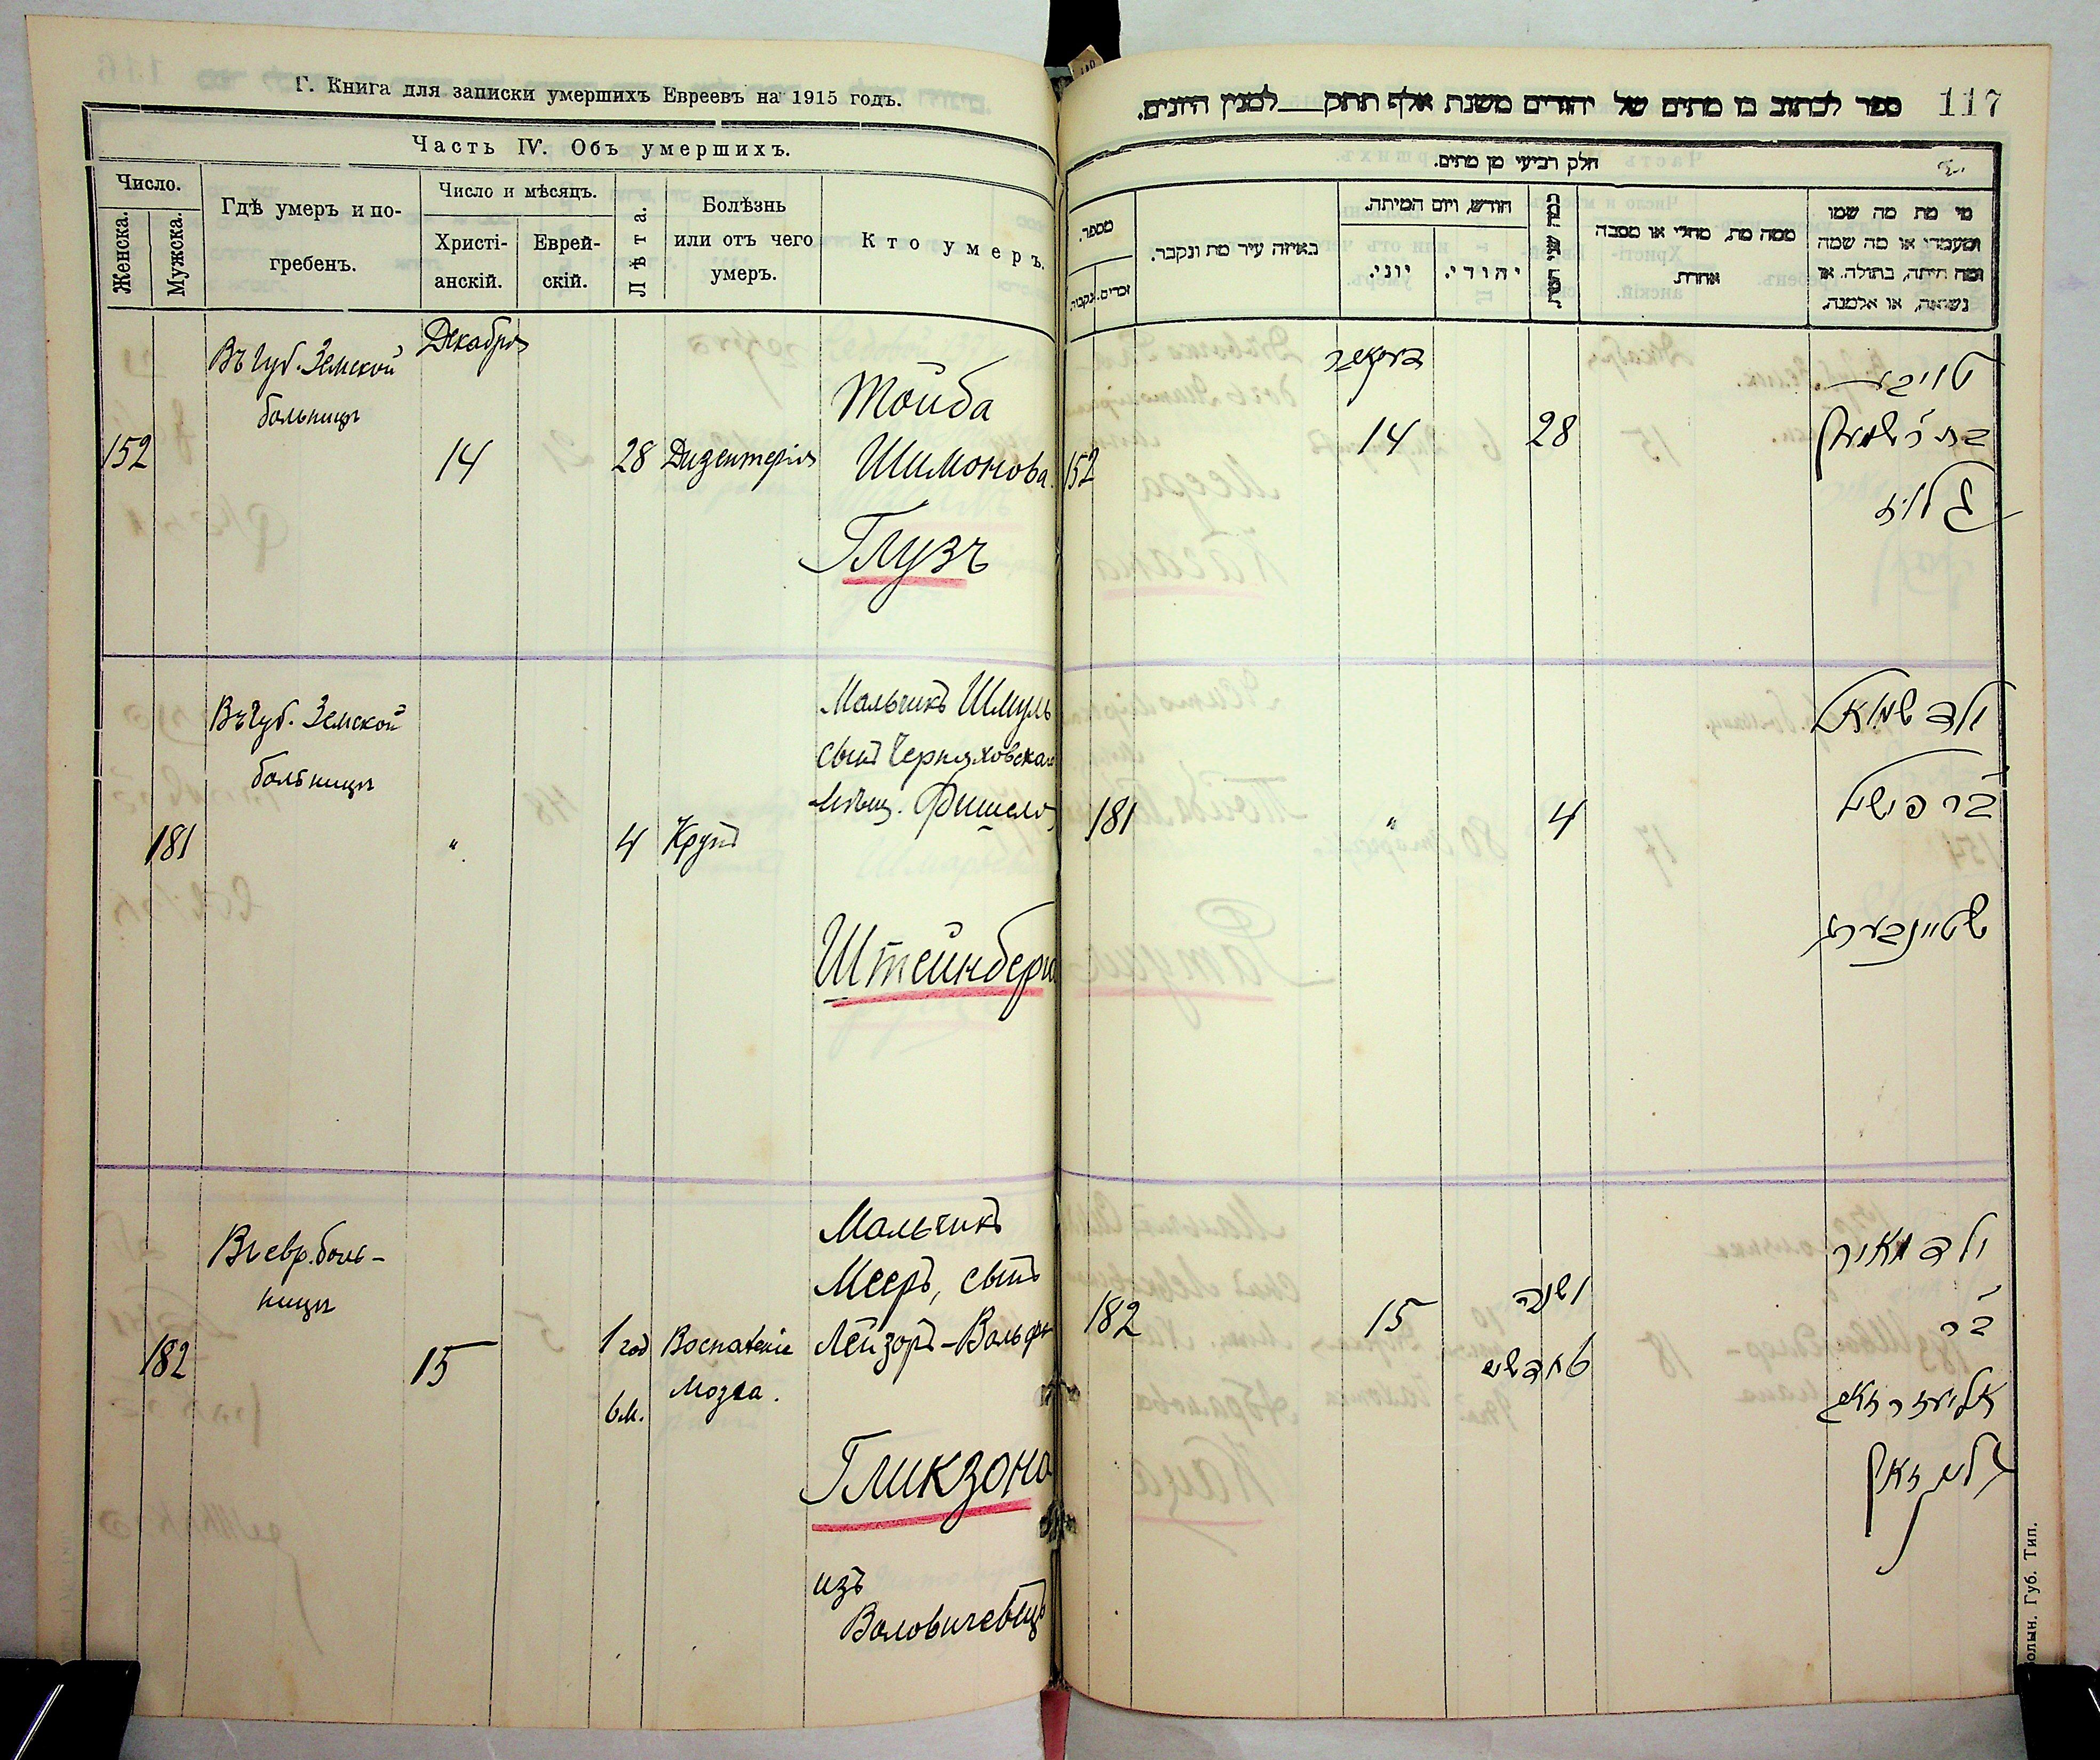 Г. Книга для записки умершихъ Евреевъ на 1915 годъ.
Часть IV. Объ умершихъ.
Число.
Женска.
Мужска.
Гдѣ умеръ и по-
гребенъ.
Число и мѣсяцъ.
Христі-
анскій.
Еврей-
скій.
Лѣта.
Болѣзнь
или отъ чего
умеръ.
Кто умеръ.
Декабря
Въ Губ. Земской
больницѣ
152
14
28
Дизентерія
Тойба
Шимонова
Глузъ
Въ Губ. Земской
больницѣ
181
"
4
Крупъ
Мальчикъ Шмуль
сынъ Черняховскаго
мѣщ. Фишеля
Штейнберга
Въ евр. боль-
ницѣ
182
15
1 год
6 м.
Воспаленіе
мозга.
Мальчикъ
Мееръ, сынъ
Лейзоръ-Вольфа
Гликзона
изъ
117
ספר לכתוב בו מתים של יהודים משנת אלף תתק למנין היונים.
חלק רביעי מן מתים.
מספר.
זכרים.
נקבות.
באיזה עיר מת ונקבר.
חודש, ויום המיתה.
יוני.
יהודי.
ממה מת, מחלי או מסבה
אחרת.
מי מת מה שמו
ומעמדו או מה שמה
ומה היתה, בתולה, או
נשואה, או אלמנה.
דעקאבר
152
14
28
טויבע
בת ר' שמעון
גלוז
181
"
4
ילד שמואל
בר פישל
שטיינבערג
182
15
ו שנה
ו חדשים
ילד מאיר
בר
אליעזר וואלף
גליקזאן
Волын. Губ. Тип.